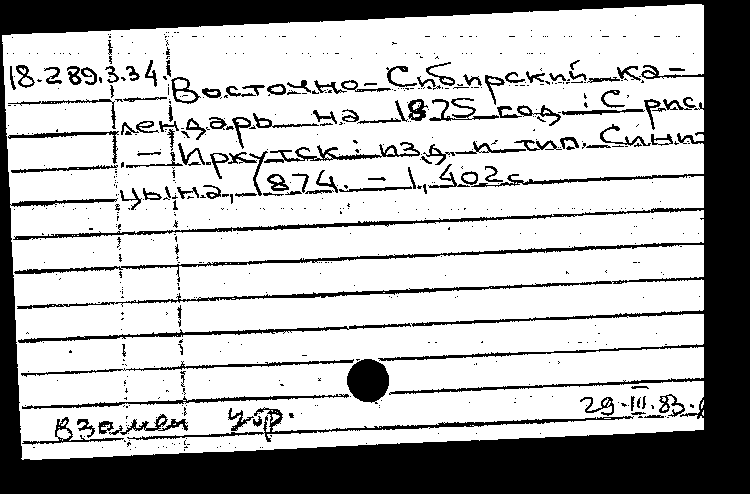 18.289.3.34. Восточно-Сибирский ка-
лендарь на 1875 год : С рис.
- Иркутск: изд. и тип. Сини-
цына, 1874. - 1, 402 с.
взамен утр. 29.III.83.